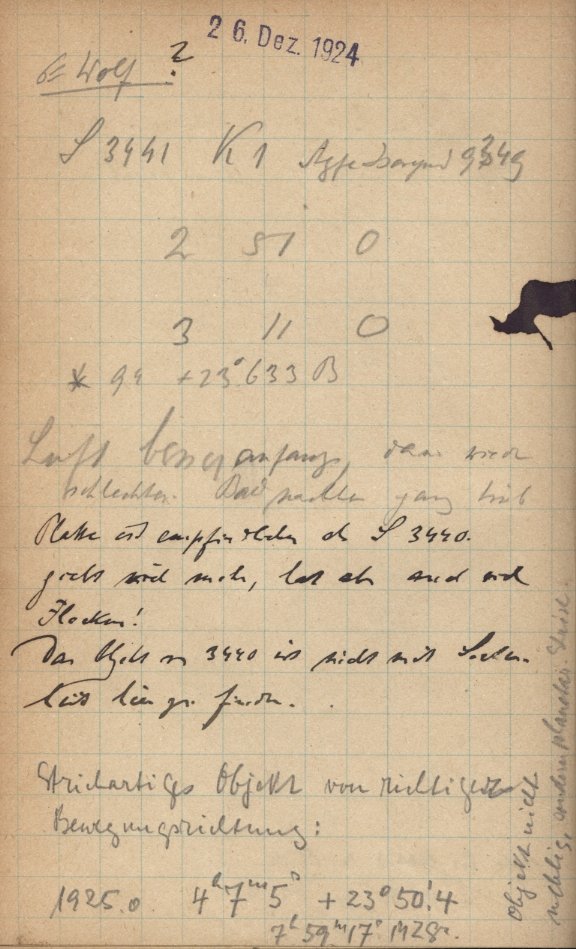 26. Dez. 1924
Wolf ?
S 3441 K 1 Agfa 9349
2 51 0
3 11 0
* 94 +23° 633 B
Luft besser anfangs, dann wieder
schlechter. Bald nachher ganz trüb
Platte ist empfindlicher als S 3440.
giebt viel mehr, hat aber auch viel
Flecken!
Das Objekt von 3440 ist nicht mit Sicher-
heit hier zu finden.
Strichartiges Objekt von richtiger
Bewegungsrichtung:
1925.0 4h 7m 5s +23° 50!4
7h 59m 17s M.Z.
Objekt nicht
richtig, sondern Strich.